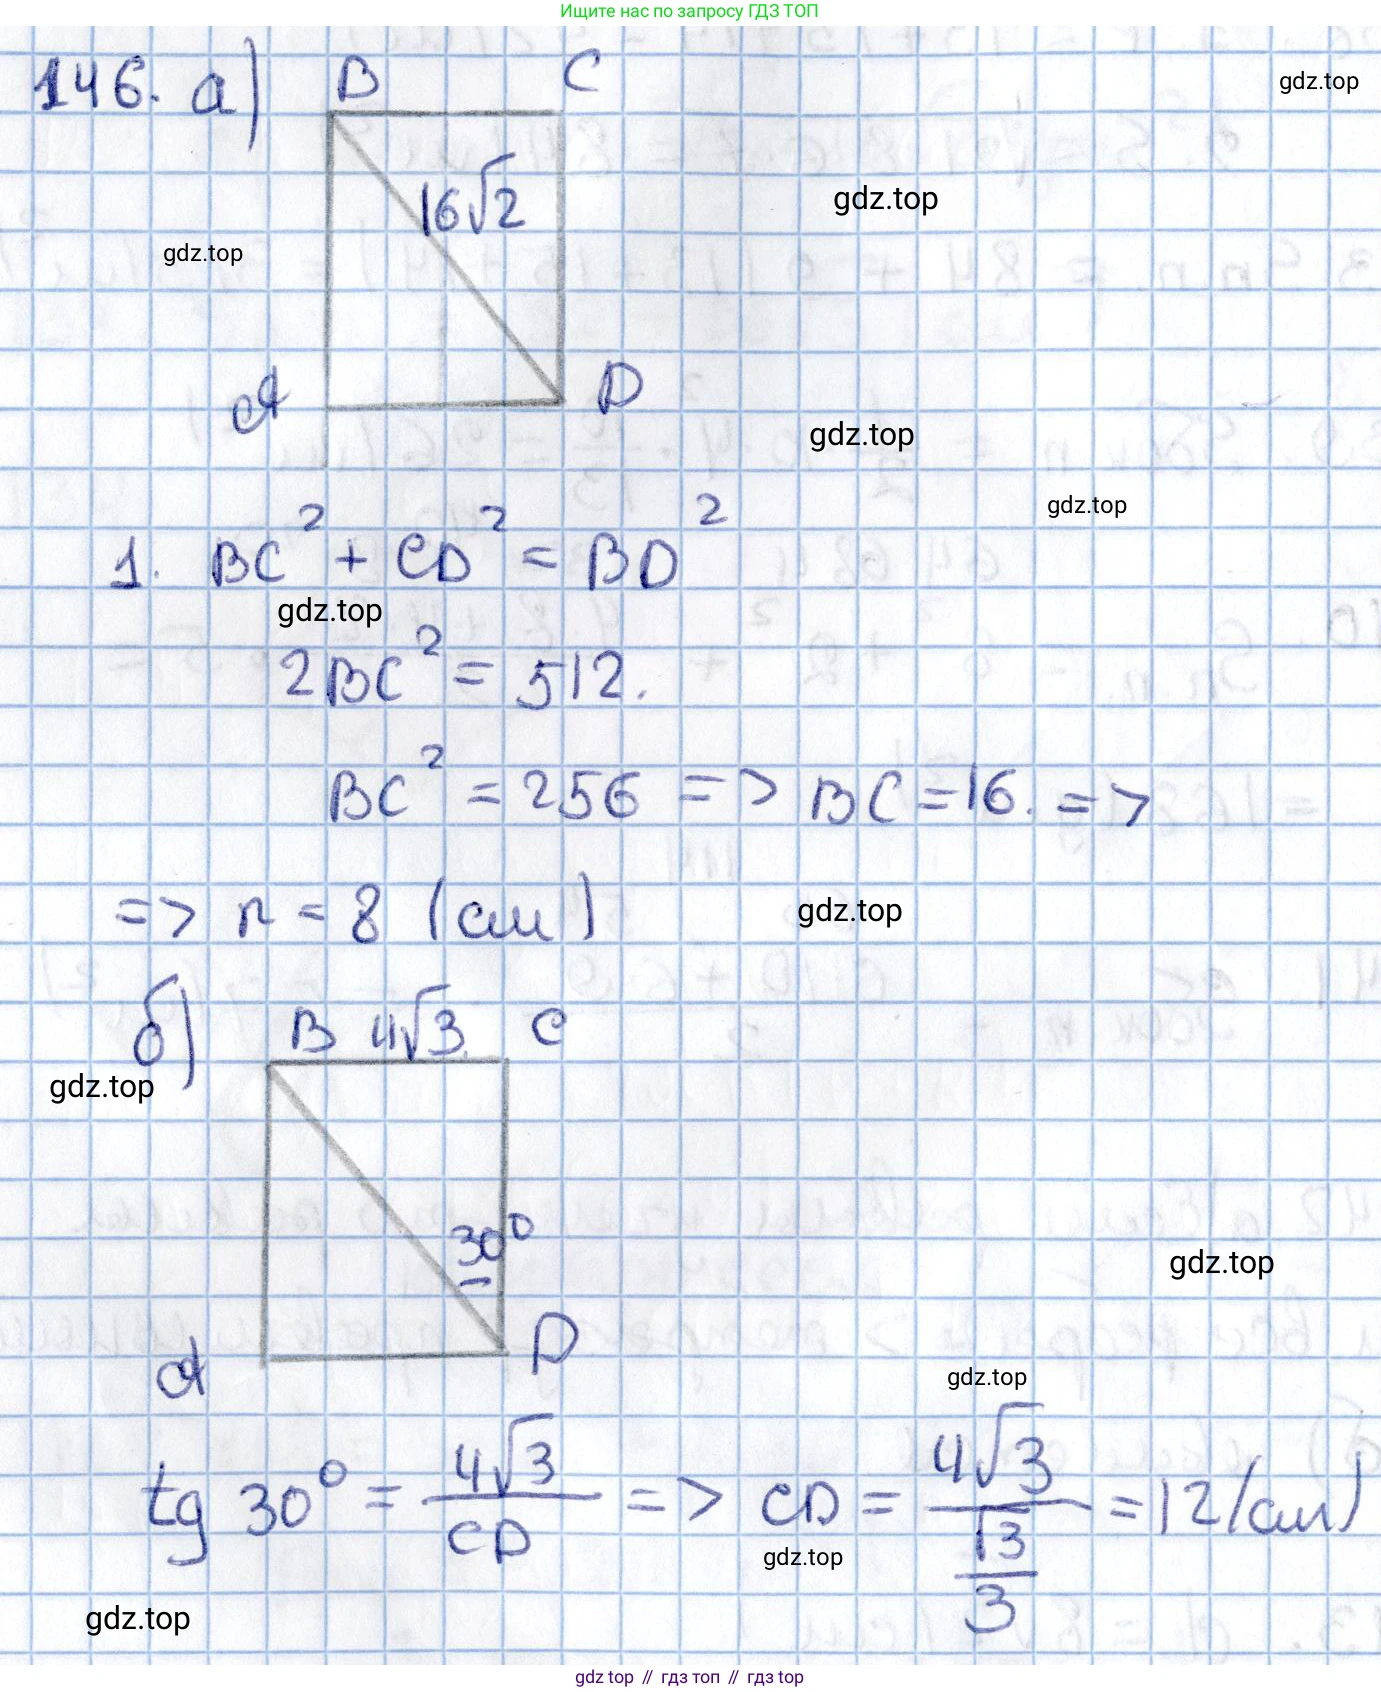 Ищите нас по запросу ГДЗ ТОП
146. а) B C
gdz.top
16√2
gdz.top
gdz.top
A D
gdz.top
gdz.top
1. BC² + CD² = BD²
gdz.top
2BC² = 512.
BC² = 256 => BC = 16. =>
=> r = 8 (см)
gdz.top
б) B 4√3 C
gdz.top
30°
gdz.top
A D
gdz.top
tg 30° = 4√3/CD => CD = 4√3/(√3/3) = 12 (см)
gdz.top
gdz.top
gdz top // гдз топ // гдз top